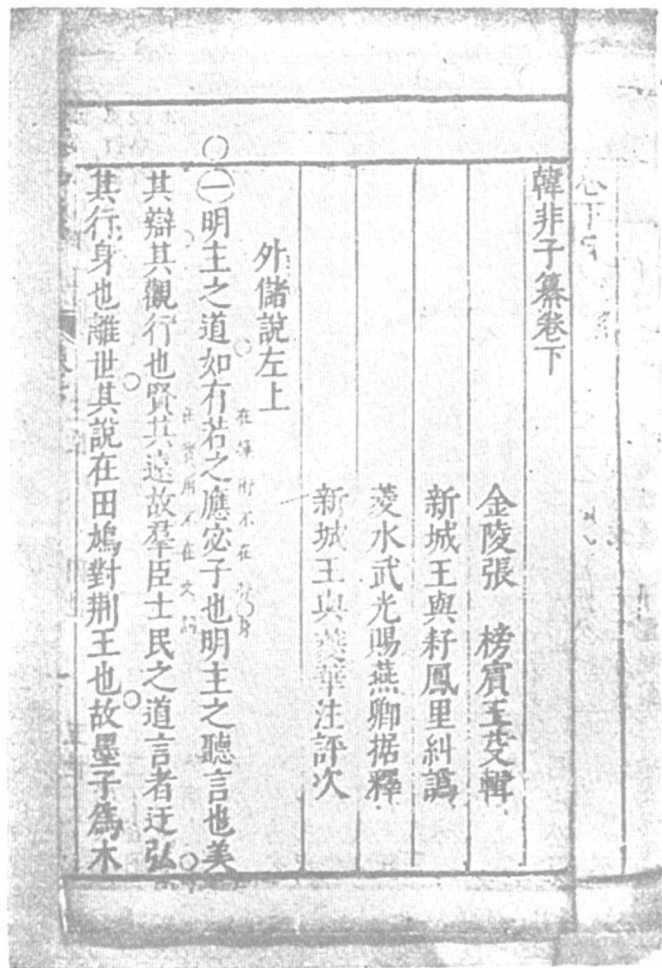 韓非子纂卷下
金陵張　榜賓王父輯
新城王與籽鳳里糾譌
菱水武光賜燕卿据釋
新城王與夔華注評次
外儲說左上
㊀明主之道如有若之應宓子也明主之聽言也美
在 術不在 身
其辯其觀行也賢其遠故羣臣士民之道言者迂弘
在實用不在文
其行身也離世其說在田鳩對荆王也故墨子爲木